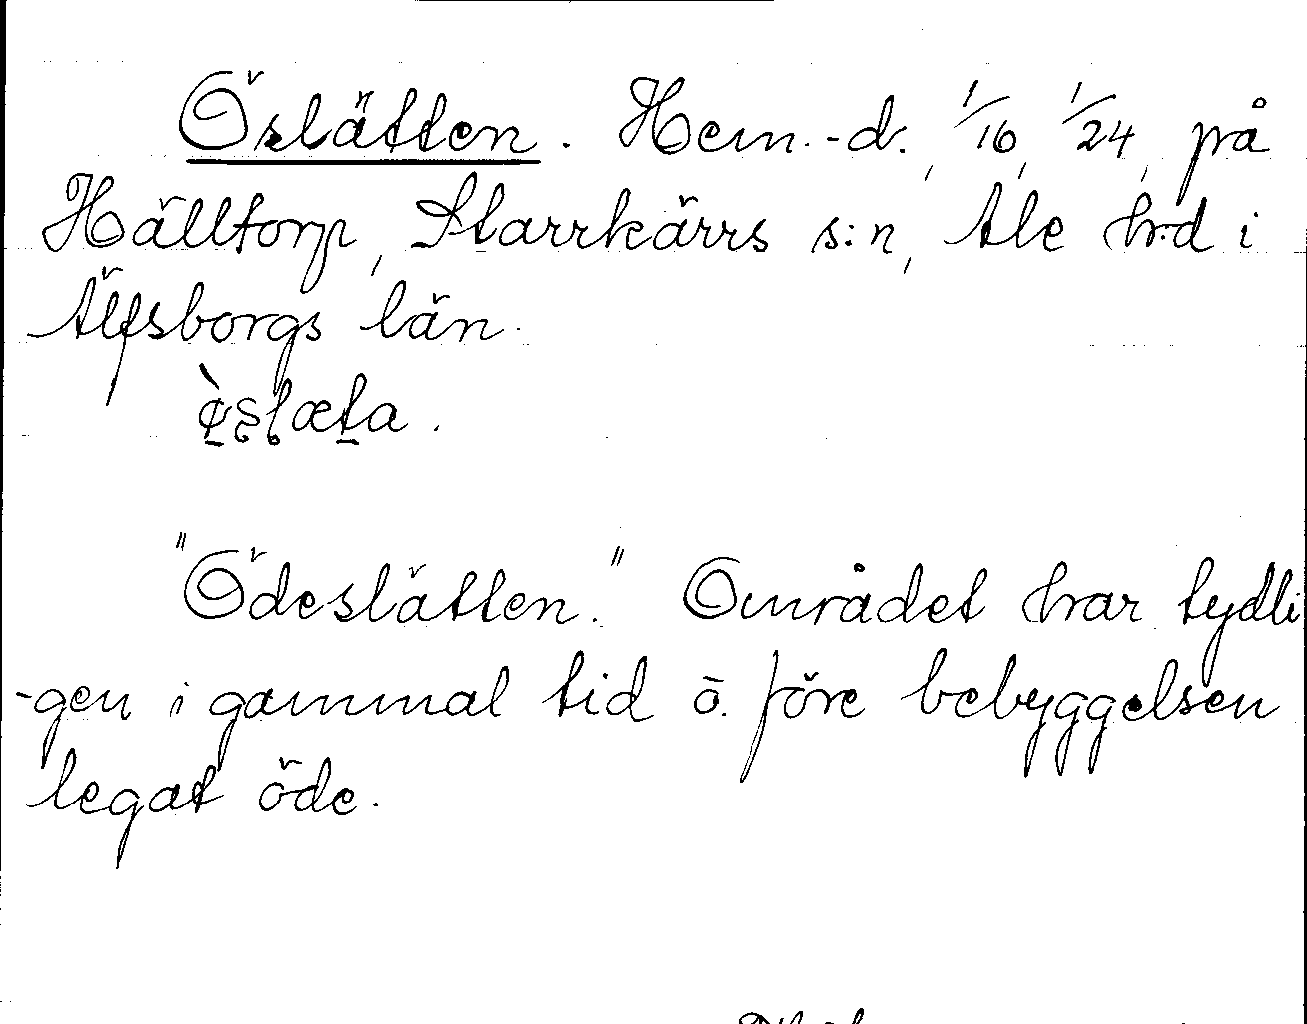 Öslätten. Hem.-d., 1/16, 1/24, på
Hälltorp, Starrkärrs s:n, Ale h:d i
Älfsborgs län.
"Ödeslätten." Området har tydli
-gen i gammal tid o. före bebyggelsen
legat öde.